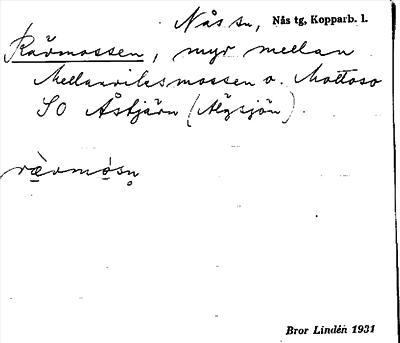 Nås sn, Nås tg, Kopparb. l.
Rävmossen, myr mellan
Mellanvilsmossen o. Mottoso
SO Åstjärn (Älgsjön).
rævmósn̥
Bror Lindén 1931